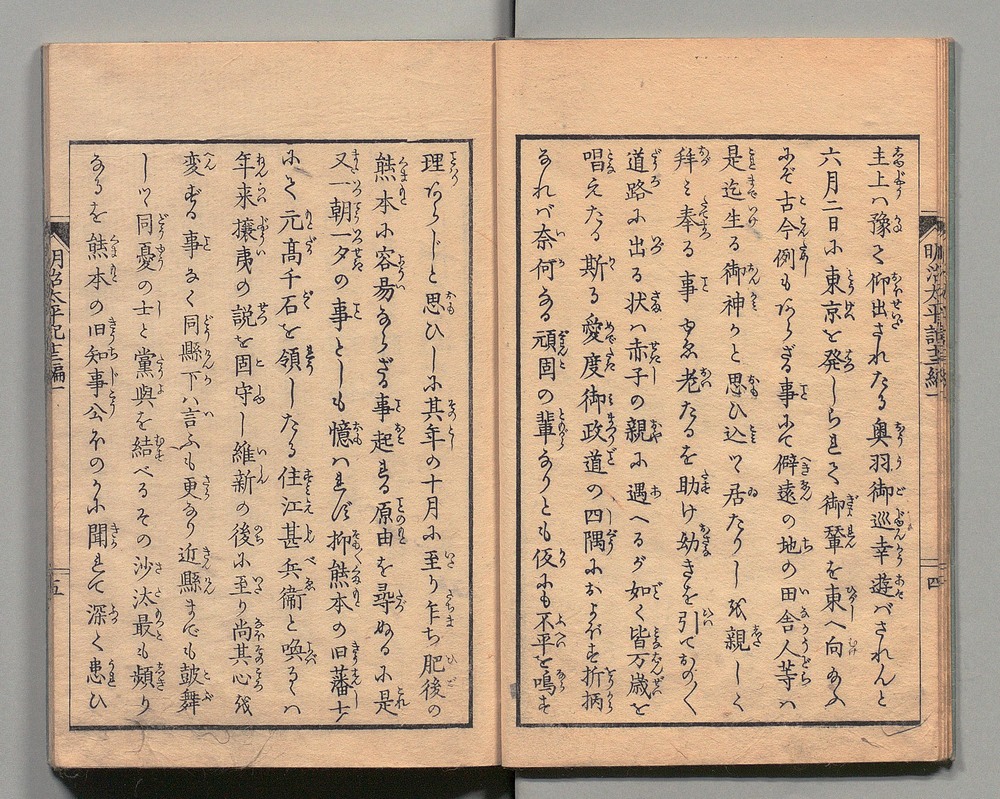 主上ハ豫て仰出されたる奥羽御巡幸遊バされんと
六月二日に東京を発しられて御輦を東へ向あふ
にぞ古今例もあらざる事にて僻遠の地の田舎人等ハ
是迄生る御神かと思ひ込ツ居たりしを親しく
拜ミ奉る事ゆゑ老たるを助け幼きを引ておの〱
道路に出る状ハ赤子の親に遇へるが如く皆万歳を
唱えたる斯る愛度御政道の四隅におよぼす折柄
なれバ奈何なる頑固の輩ありとも仮にも不平を鳴す
四
理あらじと思ひしに其年の十月に至り乍ち肥後の
熊本に容易ならざる事起る原由を尋ぬるに是
又一朝一夕の事としも憶ハれず抑熊本の旧藩士
にて元髙千石を領したる住江甚兵衞と喚るハ
年来攘夷の説を固守し維新の後に至り尚其心を
変ずる事なく同縣下ハ言ふも更なり近縣までも鼓舞
しツ同憂の士と黨與を結べるその沙汰最も頻り
なるを熊本の旧知事公ほのかに聞れて深く患ひ
明治太平記十三編一
五